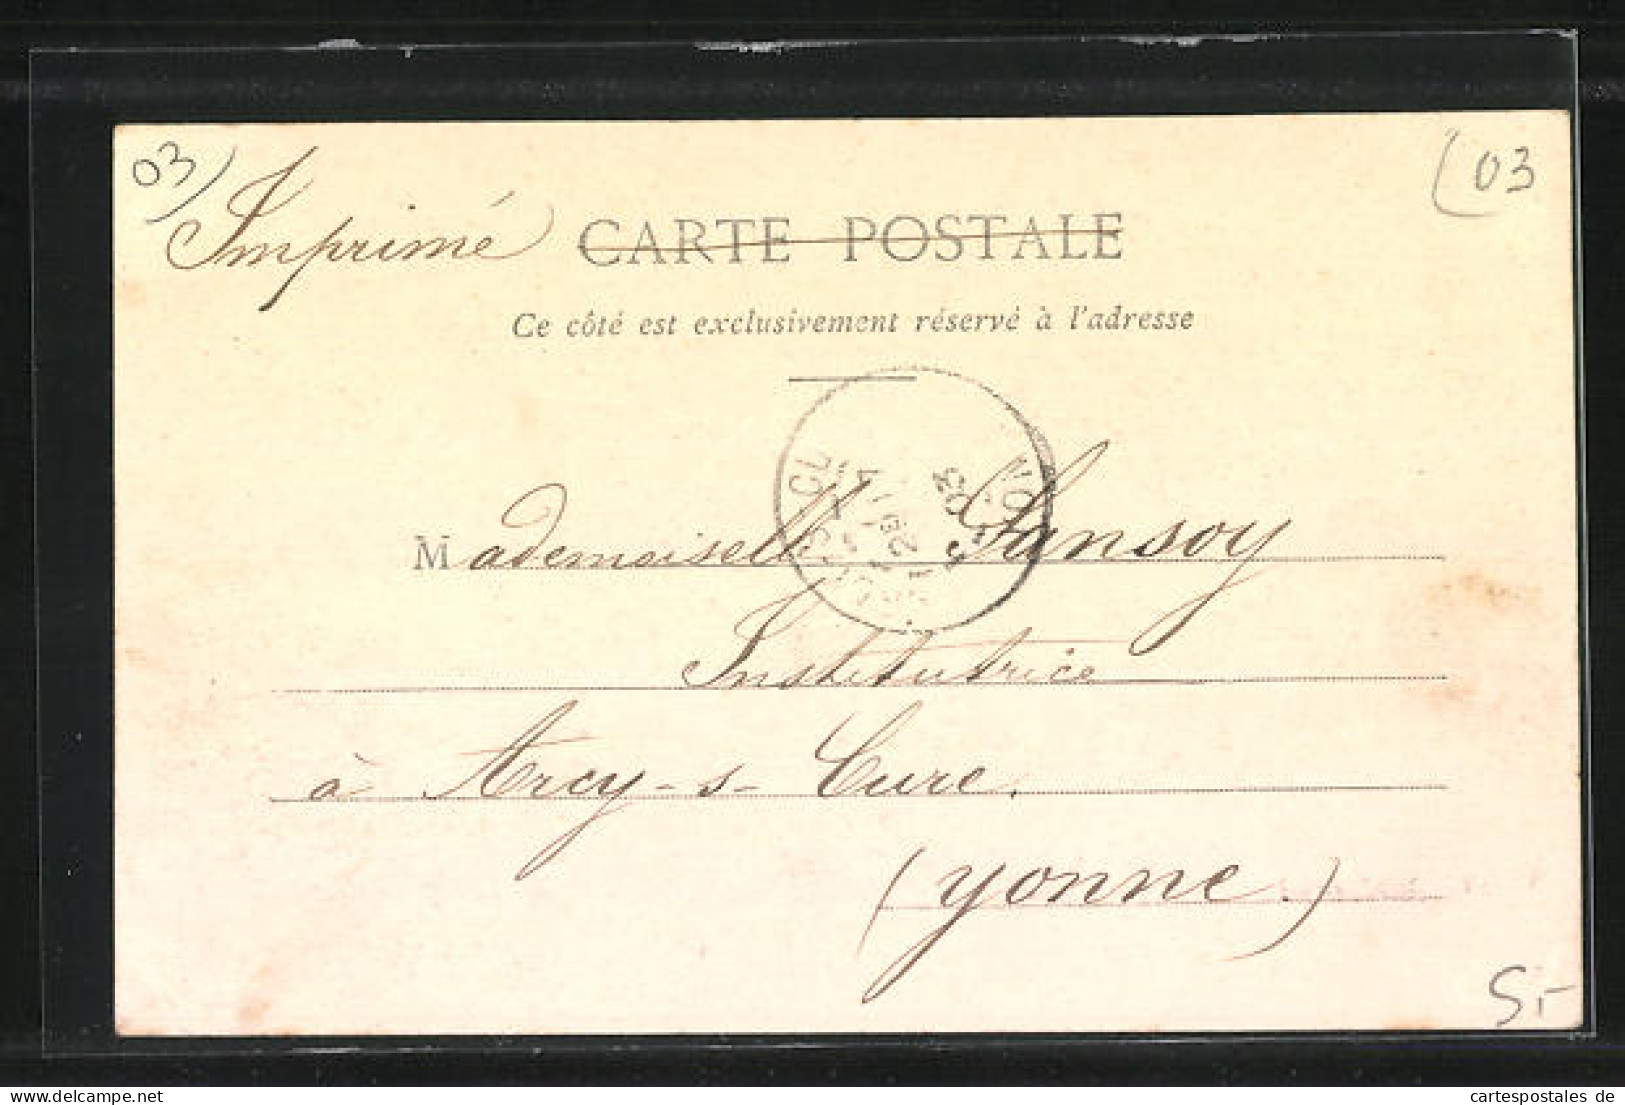 03)
(03
Imprimé CARTE POSTALE
Ce côté est exclusivement réservé à l'adresse
Mademoiselle Sansoy
Institutrice
à Arcy-s-Cure.
(Yonne)
5,-
cartespostales de